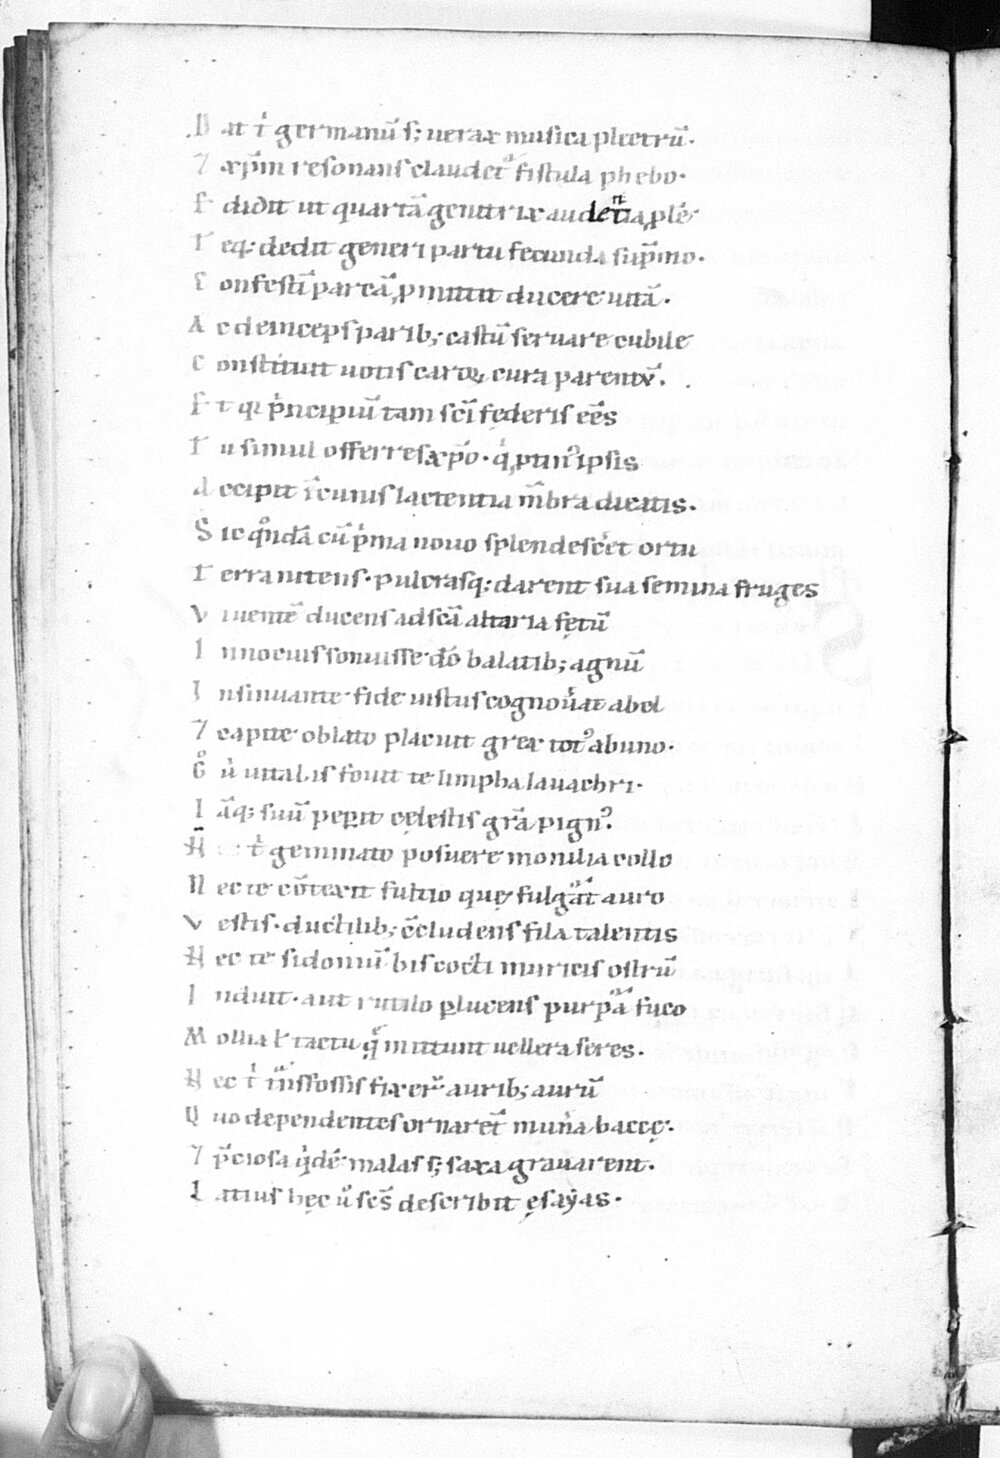 Dat t̍ germanũ s; uerax musica plectrũ.
⁊ xp̃m resonans claudet᷑ fistula phebo.
Fididit ut quartã genitrix audentia, plẽ
Teq; dedit generi partu fecunda sup̃mo.
Confestĩ parcã, pmittit ducere uitã.
Ac deinceps parib; castũ seruare cubile
Constituit uotis caroꝝ cura parentũ.
Et qi p̍ncipiũ tam sc̃i fęderis ẽẽs
Tu simul offerres xp̃o. q̍ ptin᷒ ipsis
Accipit ĩ cunis lactentia m̃bra dicatis.
Sic qͦndã cũ p̍ma nouo splendesc̃et ortu
Terra nitens. pulcrasq; darent sua semina fruges
Viuentẽ ducens ad sc̃a altaria fętũ
Innocuis sonuisse dõ balatib; agnũ
Insinuante fide iustus cognou̍at abel
⁊ capite oblato placuit grex tot᷒ ab uno.
Gͦ u̍ uitalis fouit te limpha lauachri.
Iãq; suũ pep̱it cęlestis gr̃a pign᷒.
H̃ t̍ geminato posuere monilia collo
Nec te cõtexit subtio quę fulgᷓat auro
Vestis. ductilib; c̃cludens fila talentis
Hec te sidoniũ bis cocti muricis ostrũ
Induit. aut rutilo ꝑlucens purpᷓa fuco
Mollia ł tactu q̃ mittunt uellera seres.
Hec t̍ tᷓnsfossis fixer̃ aurib; aurũ
Quo dependentes ornaret̃ mun̍a baccę.
⁊ p̃ciosa q̍dẽ malas s; saxa grauarent.
Latius hęc u̍ sc̃s describit ęsayas.